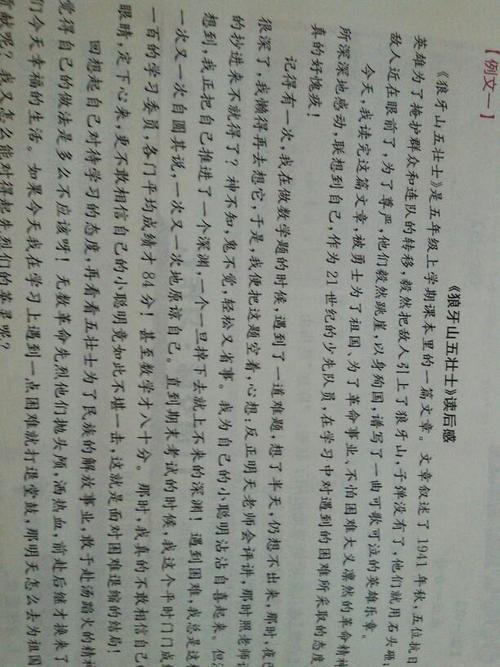 【例文一】
《狼牙山五壮士》读后感
《狼牙山五壮士》是五年级上学期课本里的一篇文章。文章叙述了1941年秋，五位抗日
英雄为了掩护群众和连队的转移，毅然把敌人引上了狼牙山，子弹没有了，他们就用石头砸；
敌人近在眼前了，为了尊严，他们毅然跳崖，以身殉国，谱写了一曲可歌可泣的英雄乐章。
今天，我读完这篇文章，被勇士为了祖国、为了革命事业、不怕困难大义凛然的革命精神
所深深地感动，联想到自己，作为21世纪的少先队员，在学习中对遇到的困难所采取的态度
真的好愧疚！
记得有一次，我在做数学题的时候，遇到了一道难题，想了半天，仍想不出来，那时，夜已
很深了，我懒得再去想它，于是，我便把这题空着，心想：反正明天老师会评讲，那时照老师讲
的抄进来不就得了？神不知，鬼不觉，轻松又省事。我为自己的小聪明沾沾自喜起来。但没
想到，我正把自己推进了一个深渊，一个一旦掉下去就上不来的深渊！遇到困难，我总是这样
一次又一次自圆其说，一次又一次地原谅自己。直到期末考试的时候，我这个平时门门成
一百的学习委员，各门平均成绩才84分！甚至数学才八十分。那时，我真的不敢相信自己
眼睛，定下心来，更不敢相信自己的小聪明竟如此不堪一击，这就是面对困难退缩的结局！
回想起自己对待学习的态度，再看看五壮士为了民族的解放事业，敢于赴汤蹈火的精神
觉得自己的做法是多么不应该呀！无数革命先烈他们抛头颅，洒热血，前赴后继才换来了
们今天幸福的生活。如果今天我在学习上遇到一点困难就打退堂鼓，那明天怎么去为祖国
贡献呢？我又怎么能对得起先烈们的革灵呢？